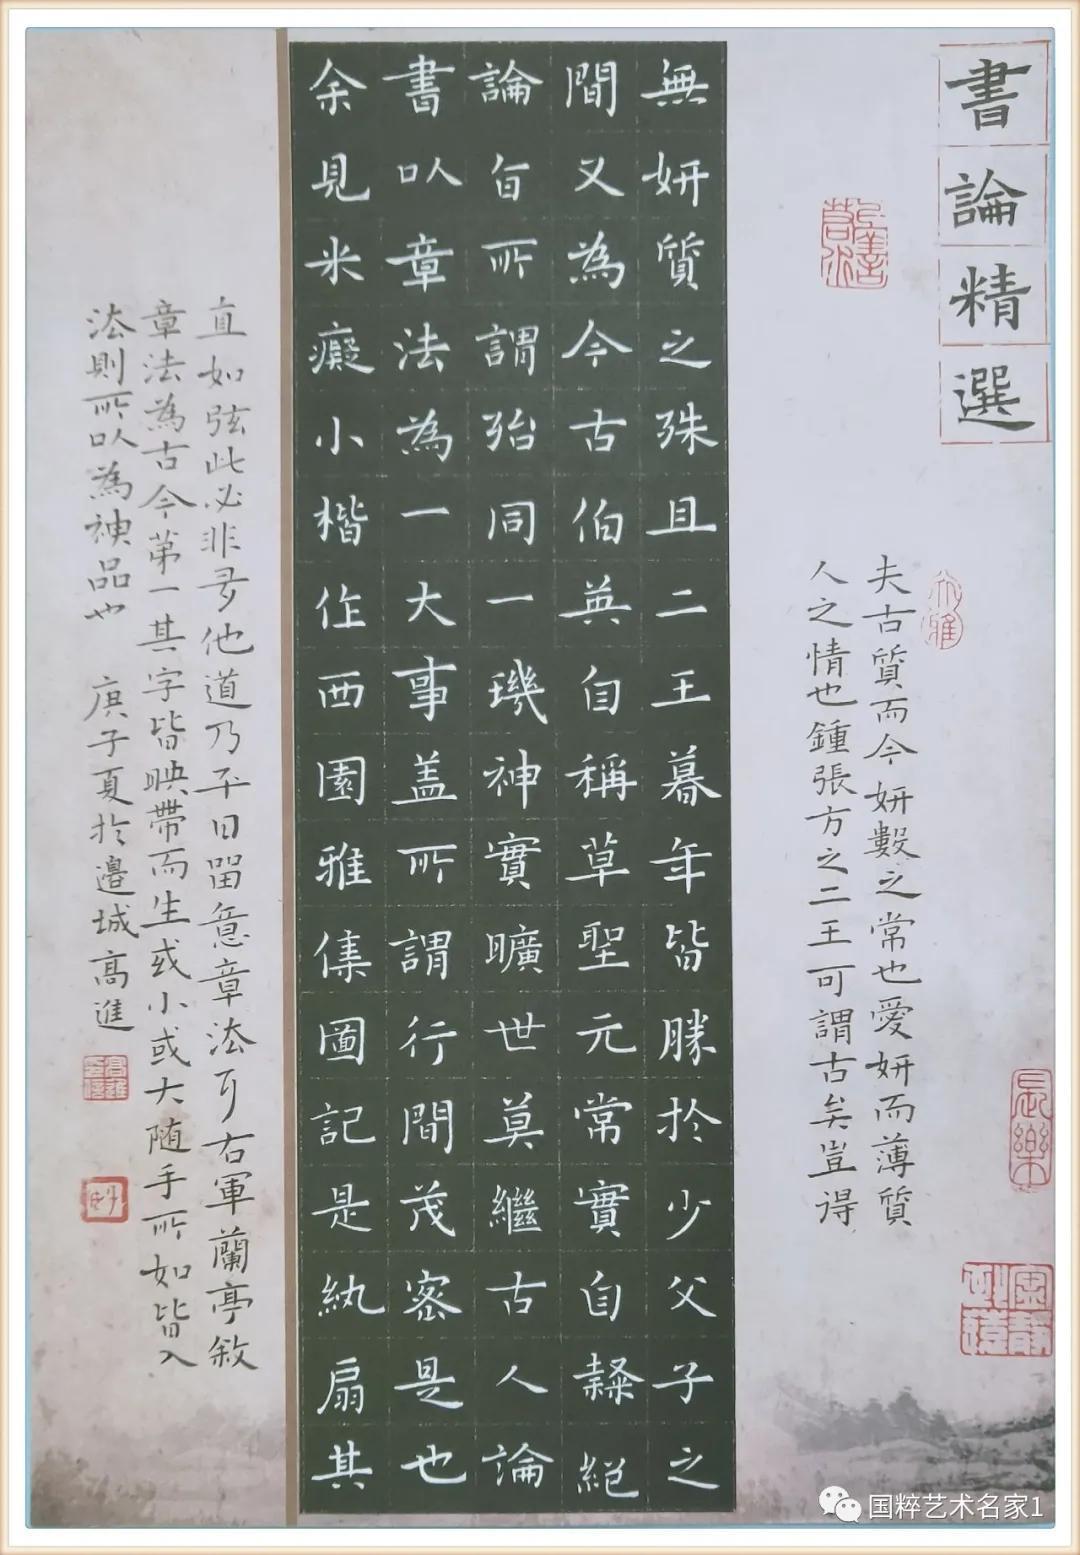 書論精選
夫古質而今妍數之常也愛妍而薄質
人之情也鍾張方之二王可謂古矣豈得
無妍質之殊且二王暮年皆勝於少父子之
間又為今古伯英自稱草聖元常實自隸絕
論旨所謂殆同一璣神實曠世莫繼古人論
書以章法為一大事盖所謂行間茂密是也
余見米癡小楷作西園雅集圖記是紈扇其
直如弦此必非有他道乃平日留意章法耳右軍蘭亭敘
章法為古今第一其字皆映帶而生或小或大随手所如皆入
法則所以為神品也 庚子夏於邊城高進
大雅
長樂
国粹艺术名家1